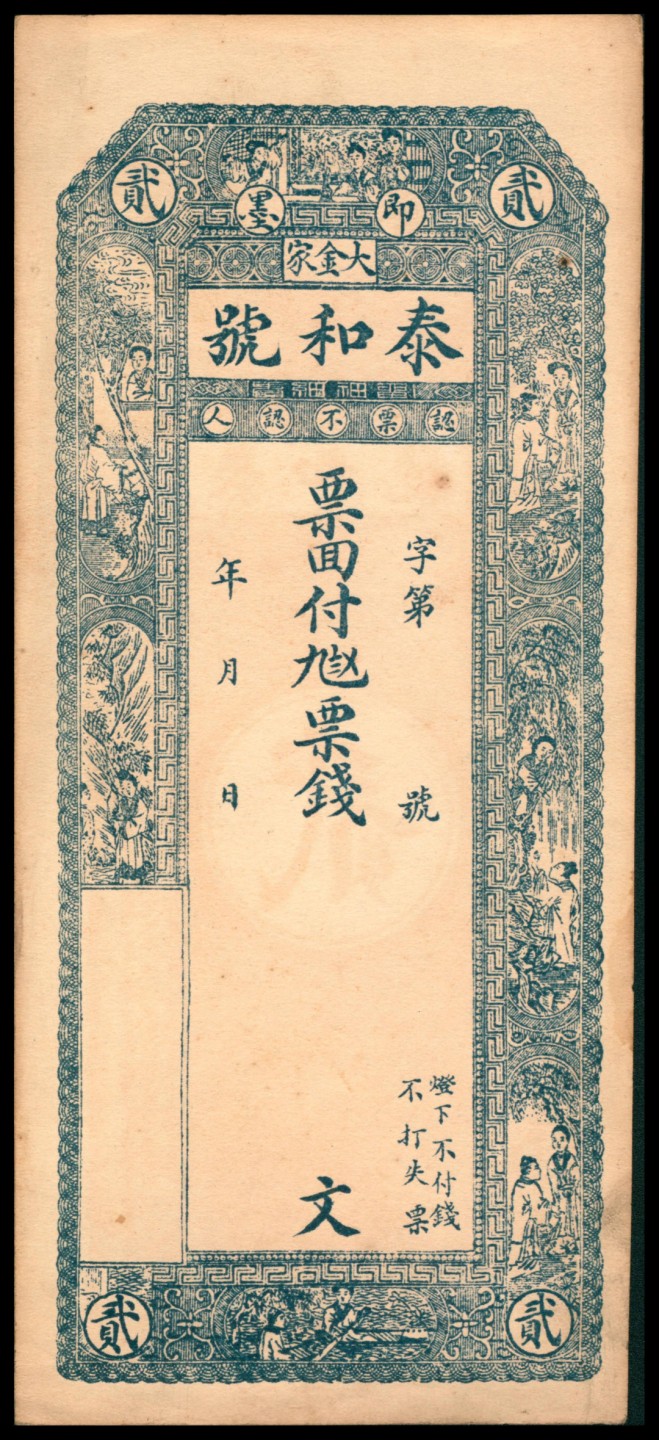 貳 貳
即墨
大金家
泰和號
認票不認人
字第 號
票面付 票錢 文
年 月 日
燈下不付錢
不打失票
貳 貳